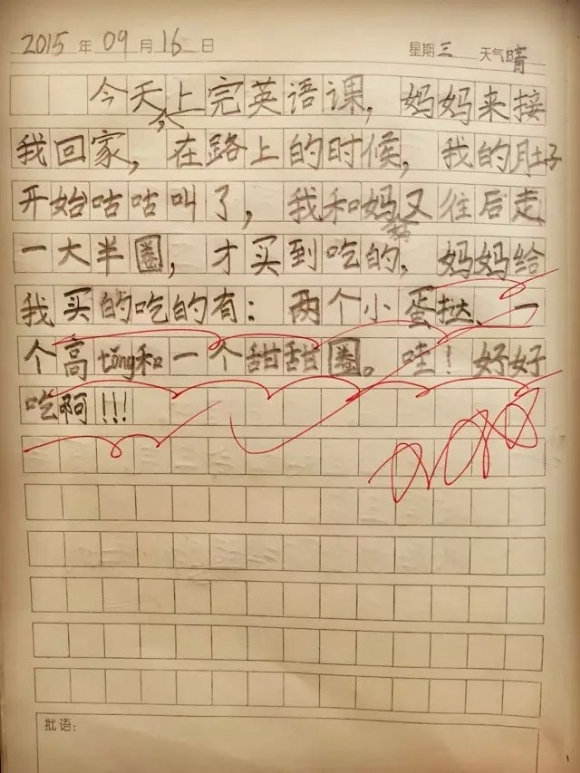 2015年09月16日 星期三 天气晴
今天上完英语课，妈妈来接
我回家，在路上的时候，我的肚子
开始咕咕叫了，我和妈妈又往后走
一大半圈，才买到吃的，妈妈给
我买的吃的有：两个小蛋挞、一
个高tǒng和一个甜甜圈。哇！好好
吃啊!!!
批语: